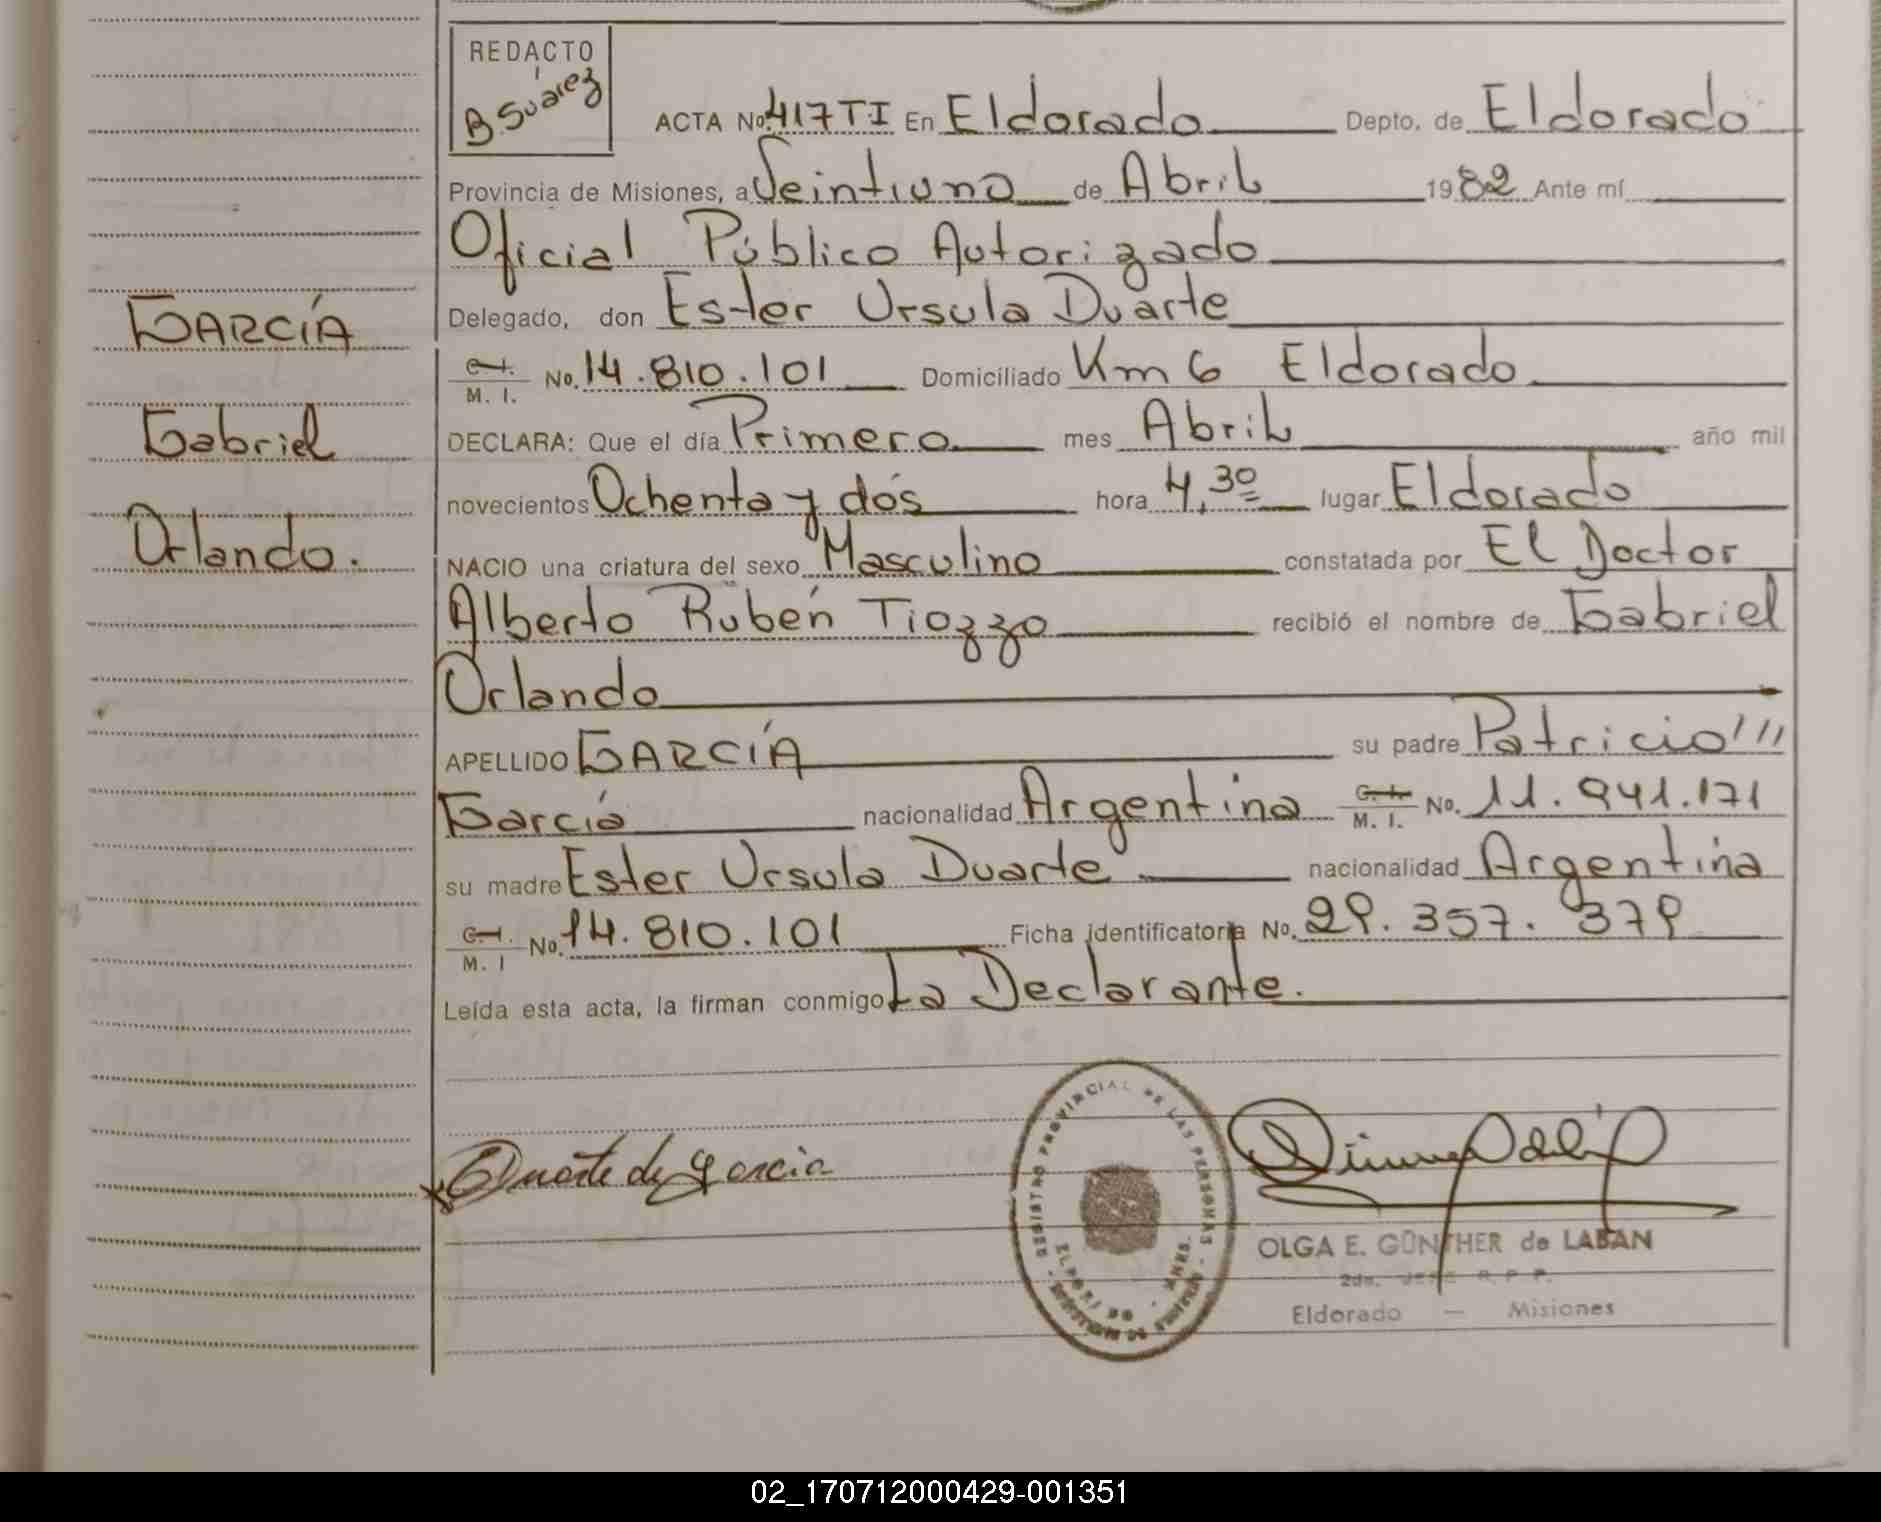 REDACTO
B. Suárez
ACTA No. 417 TI En Eldorado Depto. de Eldorado
Provincia de Misiones, a Veintiuno de Abril 1982 Ante mí
Oficial Público Autorizado
Delegado, don Ester Ursula Duarte
C.I. M. I. No. 14.810.101 Domiciliado Km 6 Eldorado
DECLARA: Que el día Primero mes Abril año mil
novecientos Ochenta y dós hora 4,30 lugar Eldorado
NACIO una criatura del sexo Masculino constatada por El Doctor
Alberto Rubén Tiozzo recibió el nombre de Gabriel
Orlando
APELLIDO GARCÍA su padre Patricio
García nacionalidad Argentina C.I. M. I. No. 11.941.171
su madre Ester Ursula Duarte nacionalidad Argentina
C.I. M. I No. 14.810.101 Ficha identificatoria No. 29.357.379
Leída esta acta, la firman conmigo La Declarante.
GARCÍA
Gabriel
Orlando.
Duarte de Garcia
REGISTRO PROVINCIAL DE LAS PERSONAS
OLGA E. GÜNTHER de LABAN
2da. JEFE R. P. P.
Eldorado — Misiones
02_170712000429-001351